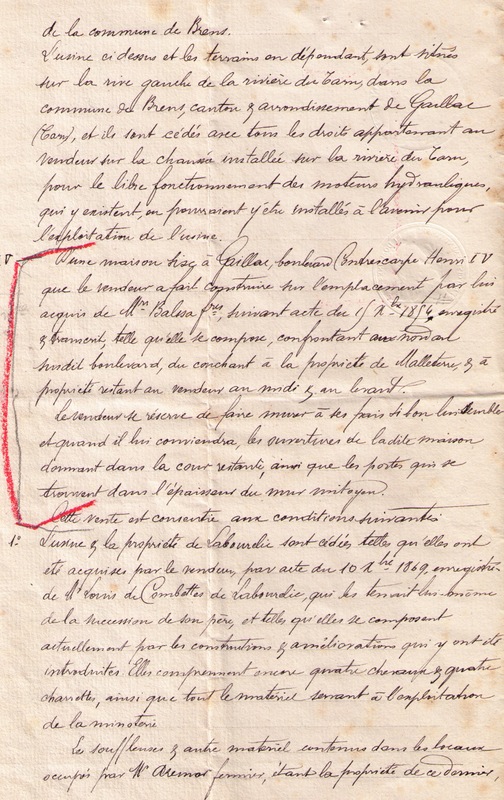 de la commune de Brens.
L'usine ci dessus et les terrains en dépendant, sont situés
sur la rive gauche de la rivière du Tarn, dans la
commune de Brens, canton & arrondissement de Gaillac
(Tarn), et ils sont cédés avec tous les droits appartenant au
vendeur sur la chaussée installée sur la rivière du Tarn,
pour le libre fonctionnement des moteurs hydrauliques,
qui y existent, ou pourraient y être installés à l'avenir pour
l'exploitation de l'usine.
V d'une maison sise à Gaillac, boulevard Contrescarpe Henri IV
que le vendeur a fait construire sur l'emplacement par lui
acquis de Mrs Balssa frres, suivant acte du 15 Xbre 1854, enregistré
& transcrit, telle qu'elle se compose, confrontant au nord au
susdit boulevard, du couchant à la propriété de Malleterre, & à
propriété restant au vendeur au midi & au levant.
Le vendeur se réserve de faire murer à ses frais si bon lui semble
et quand il lui conviendra, les ouvertures de la dite maison
donnant dans la cour restante, ainsi que les portes qui se
trouvent dans l'épaisseur du mur mitoyen.
Cette vente est consentie aux conditions suivantes
1° L'usine & la propriété de Labourdie sont cédées telles qu'elles ont
été acquises par le vendeur, par acte du 10 Xbre 1869, enregistré
de Mr Louis de Combettes de Labourdie, qui les tenait lui-même
de la succession de son père, et telles qu'elles se composent
actuellement par les constructions & améliorations qui y ont été
introduites. Elles comprennent encore quatre chevaux & quatre
charrettes, ainsi que tout le matériel servant à l'exploitation
de la minoterie
Les souffleuses & autre matériel contenus dans les locaux
occupés par Mr fermier, étant la propriété de ce dernier,